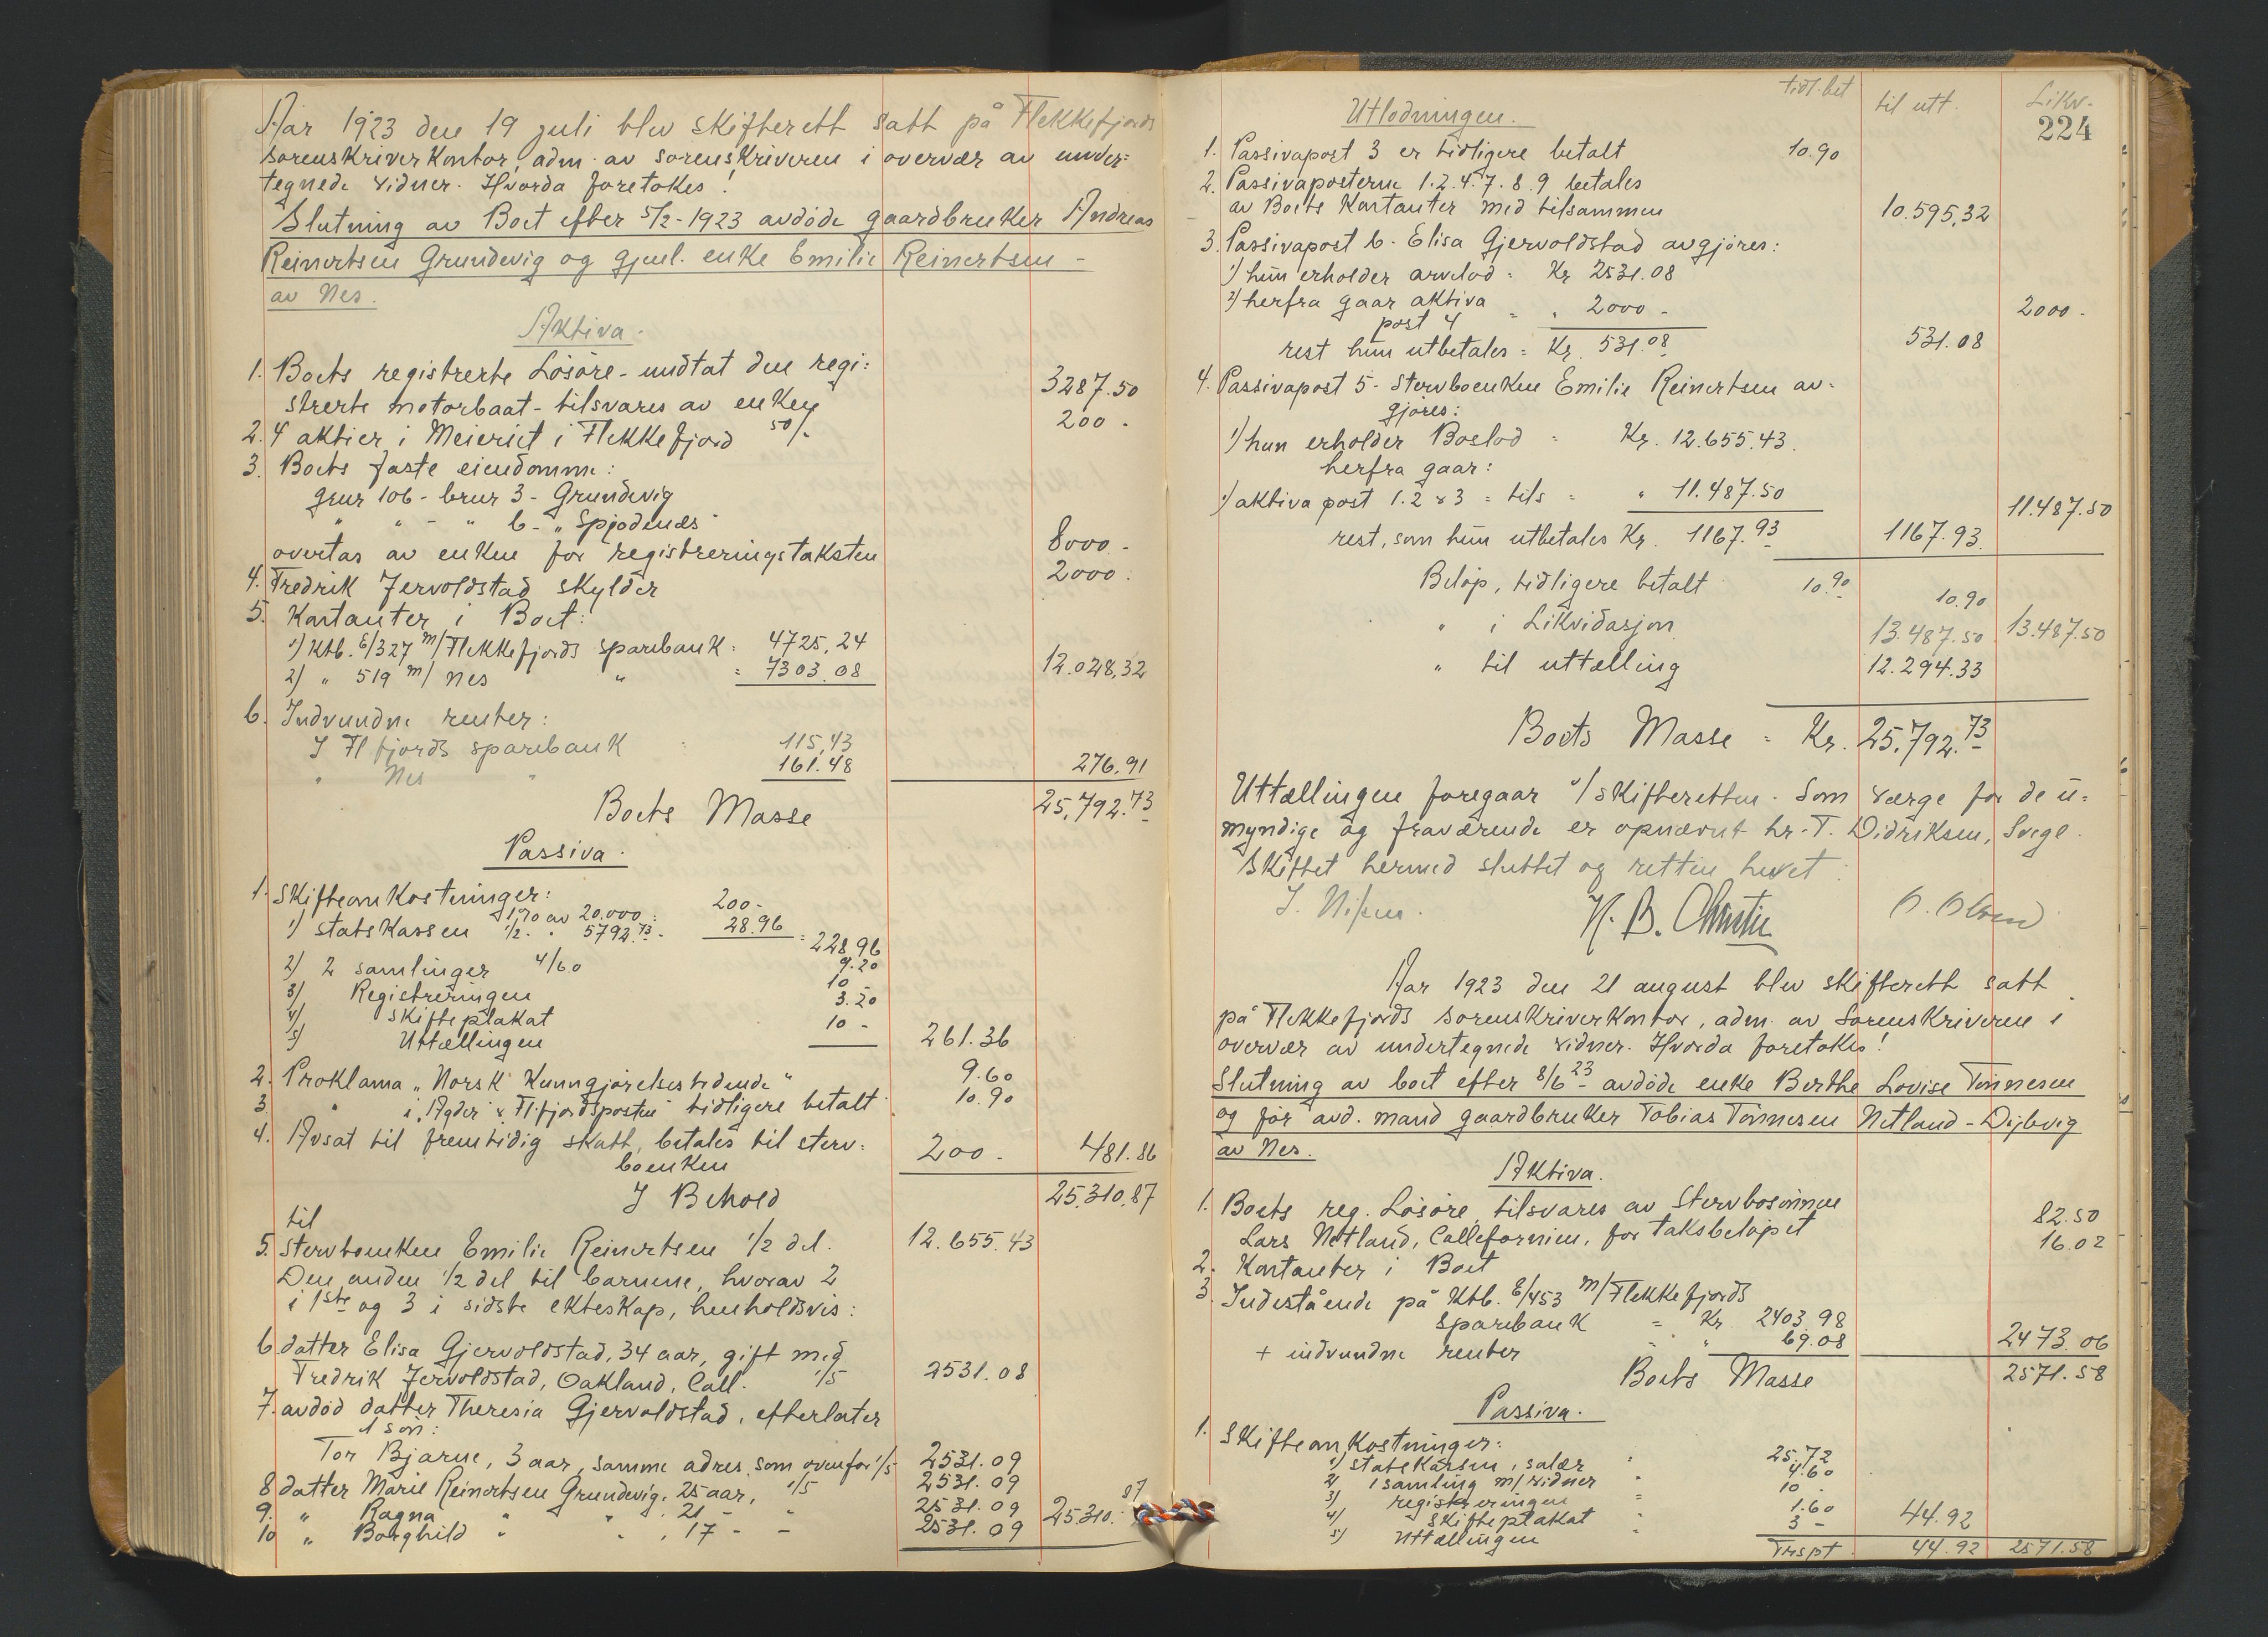 Aar 1923 den 19 juli blev skifterett satt på Flekkefjords
sorenskriverkontor, adm. av sorenskriveren i overvær av under=
tegnede vidner. Hvorda foretokes!
Slutning av Boet efter 5/2-1923 avdöde gaardbruker Andreas
Reinertsen Grundevig og gjenl. enke Emilie Reinertsen -
av Nes.
Aktiva.
1. Boets registrerte Lösöre - undtat den regi=
strerte motorbaat - tilsvares av enken 3287.50
2. 4 aktier i Meieriet i Flekkefjord 50/- 200 -
3. Boets faste eiendomme:
gnr 106 - brnr 3 - Grundevig
" " - " 6 - "Spjodenæs"
overtas av enken for registreringstaksten 8000 -
4. Fredrik Jervoldstad skylder 2000.
5. Kontanter i Boet:
1) Ktb. E/327 m/Flekkefjords sparebank = 4725,24
2) " 519 m/ Nes " = 7303.08 12.028,32
6. Indvundne renter:
I Fl fjords sparebank 115,43
" Nes " 161.48 276,91
Boets Masse 25,792.73
Passiva.
1. Skifteomkostninger:
1) statskassen 1% av 20.000: 200 -
1/2 - " 5792.73 - 28.96 = 228,96
2) 2 samlinger 4/60 9.20
3) Registreringen 10 -
4) skifteplakat 3.20
5) Uttællingen 10 - 261.36
2. Proklama "Norsk Kunngjørelsestidende" 9.60
3. " i "Agder" & Fl.fjordsposten tidligere betalt 10.90
4. Avsat til fremtidig skatt, betales til sterv=
boenken 200 - 481.86
I Behold 25.310,87
til
5. stervboenken Emilie Reinertsen 1/2 del. 12.655.43
Den anden 1/2 del til barnene, hvorav 2
i 1ste og 3 i sidste ekteskap, henholdsvis:
6 datter Elisa Gjervoldstad, 34 aar, gift med
Fredrik Jervoldstad, Oakland, Call. 1/5 2531.08
7. avdöd datter Theresia Gjervoldstad, efterlater
1 sön:
Tor Bjarne, 3 aar, samme adres. som ovenfor 1/5 2531.09
8 datter Marie Reinertsen Grundevig, 25 aar, 1/5 2531.09
9. " Ragna " " , 21 - " 2531.09
10 " Borghild " " , 17 - - 2531.09 25310.87
224
tidl. bet til utt. Likv.
Utlodningen.
1. Passivapost 3 er tidligere betalt 10.90
2. Passivaposterne 1.2.4.7.8.9 betales
av Boets Kontanter med tilsammen 10.595,32
3. Passivapost 6. Elisa Gjervoldstad avgjöres:
1) hun erholder arvelod = Kr 2531.08
2) herfra gaar aktiva
post 4 = " 2000 - 2000 -
rest hun utbetales = Kr. 531.08 531.08
4. Passivapost 5 - stervboenken Emilie Reinertsen av=
gjöres:
1) hun erholder Boslod = Kr. 12.655.43.
herfra gaar:
1) aktiva post 1.2 & 3 = tils = " 11.487.50 11.487.50
rest, som hun utbetales Kr. 1167.93 1167.93
Belöp, tidligere betalt 10.90 10.90
" i Likvidasjon 13.487.50 13.487.50
" til uttælling 12.294.33
Boets Masse = Kr. 25,792.73
Uttællingen foregaar v/skifteretten. Som værge for de u=
myndige og fraværende er opnævnt hr. T. Didriksen, Svege.
Skiftet hermed sluttet og retten hevet.
H. B. Christie
Aar 1923 den 21 august blev skifterett satt
på Flekkefjords sorenskriverkontor, adm. av sorenskriveren i
overvær av undertegnede vidner. Hvorda foretokes!
Slutning av boet efter 8/6 23 avdöde enke Berthe Lovise Tönnesen
og för avd. mand gaardbruker Tobias Tönnesen Netland - Dybvig
av Nes.
Aktiva.
1. Boets reg. Lösöre tilsvares av stervbosönnen
Lars Netland, Callefornien, for taksbelöpet 82.50
2. Kontanter i Boet 16.02
3. Indestående på Ktb. E/453 m/Flekkefjords
sparebank = Kr 2403.98
+ indvundne renter " 69.08 2473.06
Boets Masse 2571.58
Passiva.
1. Skifteomkostninger:
1) statskassen, salær 25.72
2) 1 samling m/vidner 4.60
3) registreringen 10.
4) skifteplakat 1.60
5) Uttællingen 3 - 44.92
Trspt 44.92 2571.58